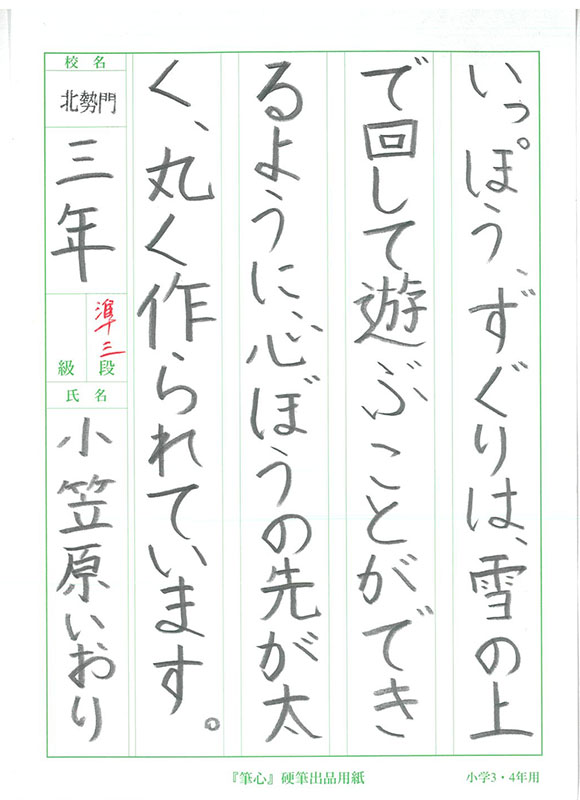 いっぽう、ずぐりは、雪の上
で回して遊ぶことができ
るように、心ぼうの先が太
く、丸く作られています。
校名
北勢門
三年
準三
級
段
氏名
小笠原いおり
『筆心』硬筆出品用紙
小学3・4年用